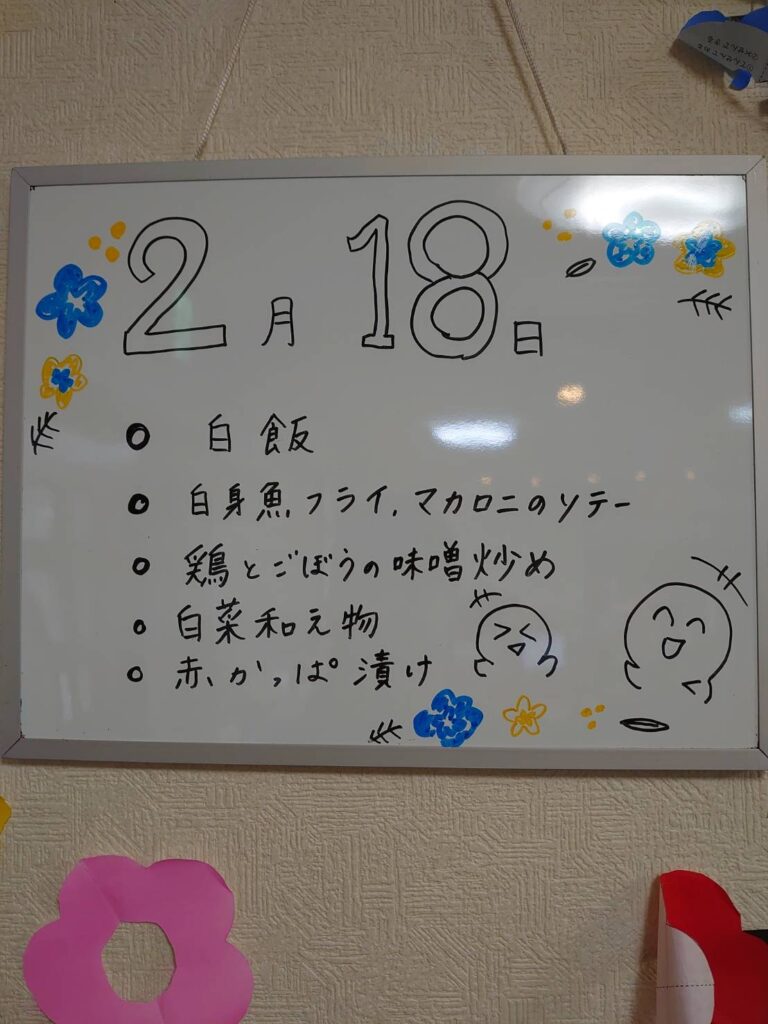 2月 18日
● 白飯
● 白身魚フライ、マカロニのソテー
● 鶏とごぼうの味噌炒め
● 白菜和え物
● 赤、かっぱ漬け